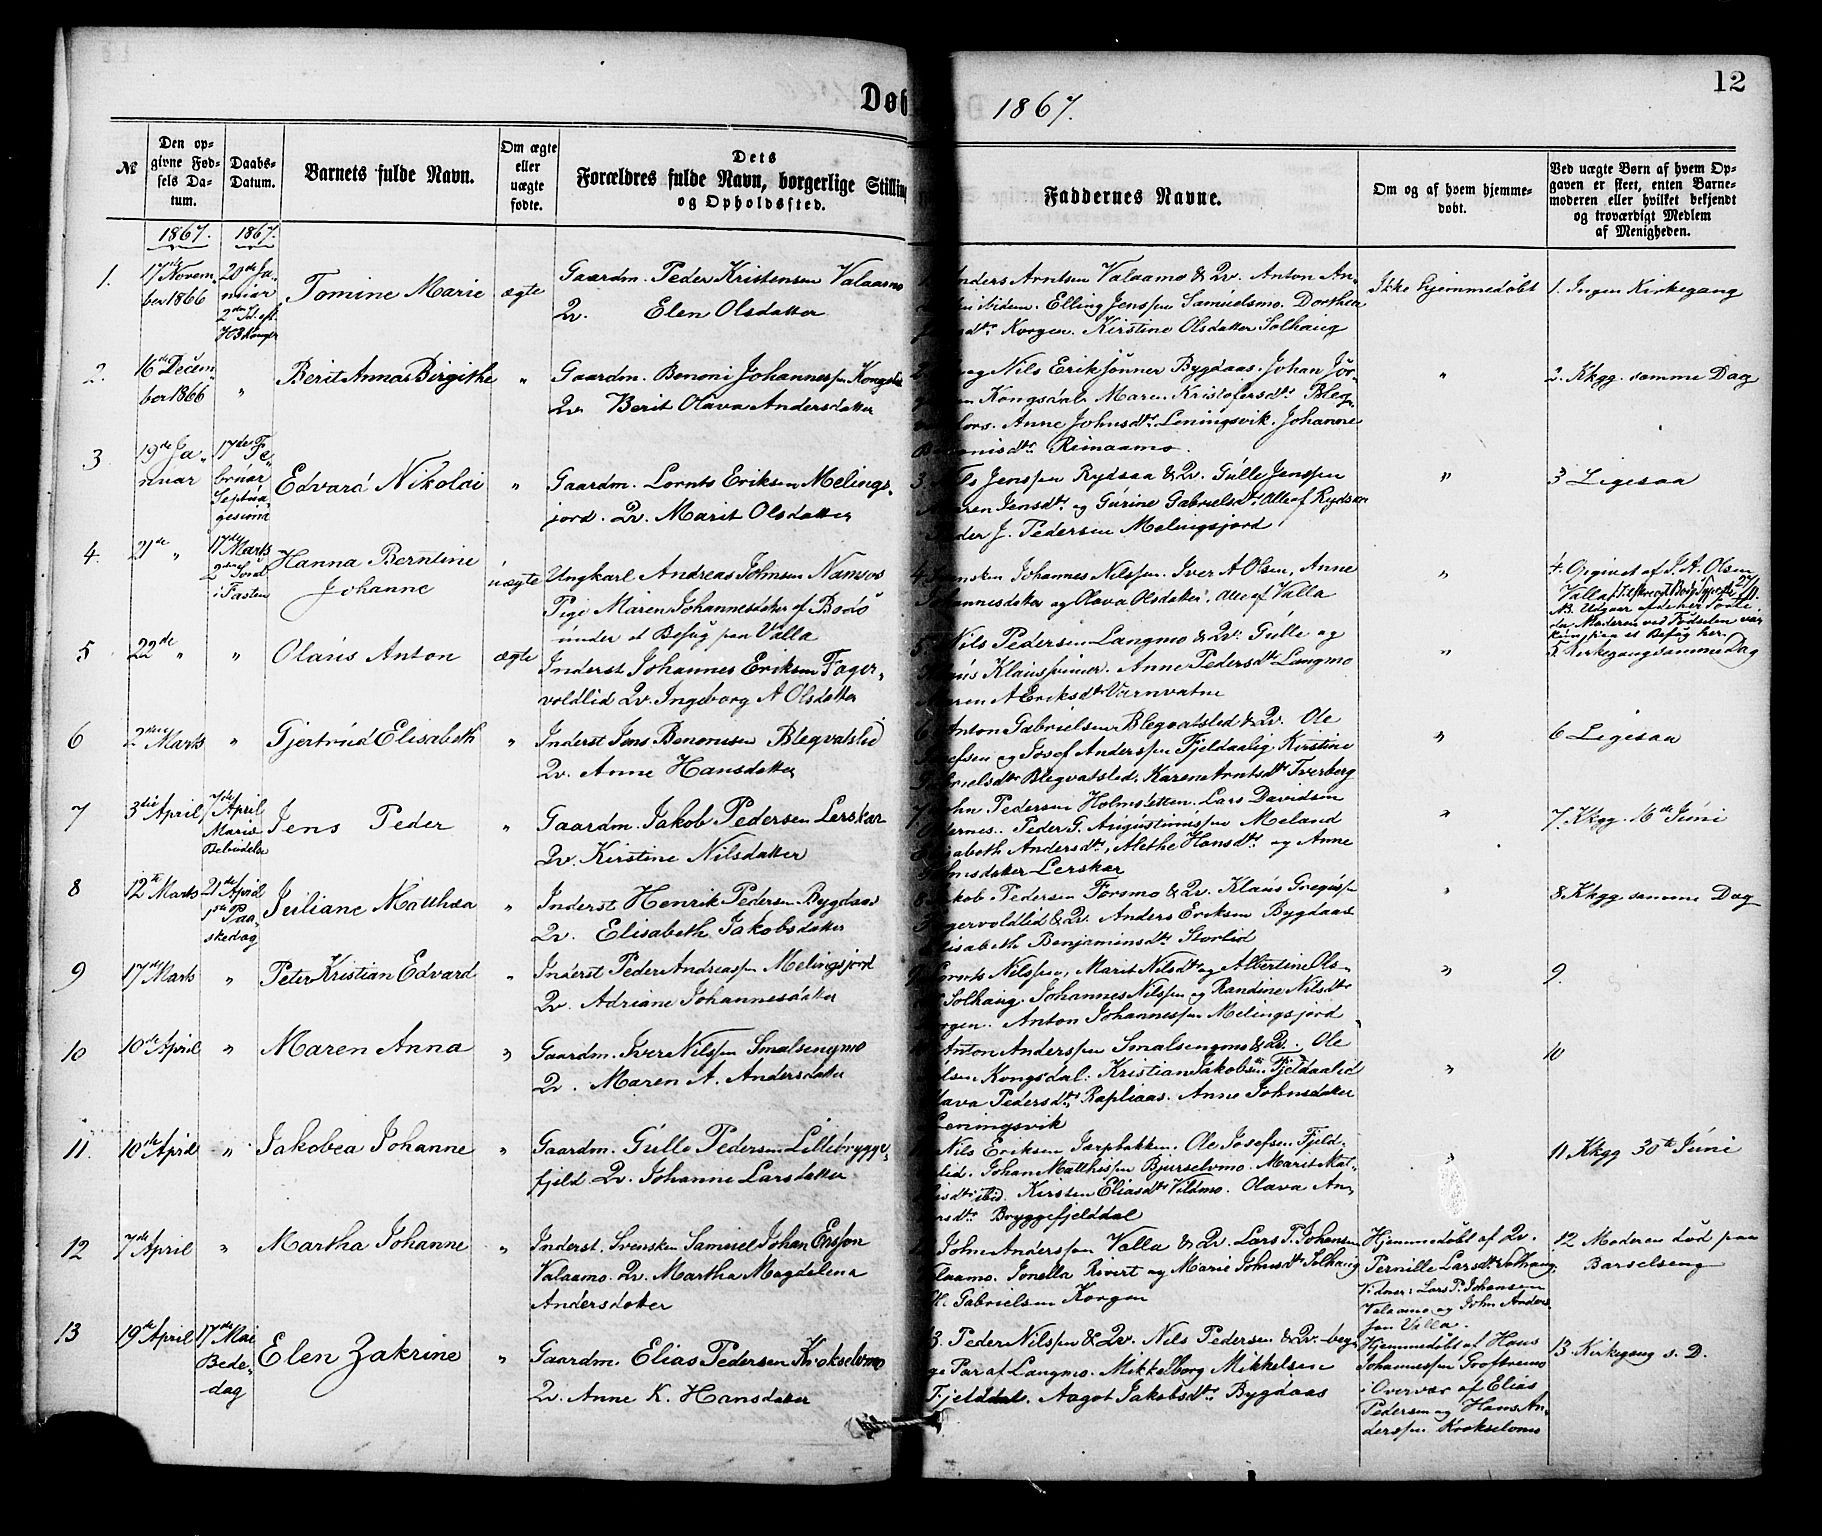 12
Døb
1867.
№
Den op-
givne Fød-
sels Da-
tum.
Daabs-
Datum.
Barnets fulde Navn.
Om ægte
eller
uægte
fødte.
Dets
Forældres fulde Navn, borgerlige Stilling
og Opholdssted.
Faddernes Navne.
Om og af hvem hjemme-
døbt.
Ved uægte Børn af hvem Op-
gaven er skeet, enten Barne-
moderen eller hvilket bekjendt
og troværdigt Medlem
af Menigheden.
1867. 1867.
1.
17de Novem-
ber 1866
20de Ja-
nuar
2den Sd. eft.
H3Konger
Tomine Marie
ægte
Gaardm. Peder Kristensen Valaamo
Qv. Elen Olsdatter
Anders Arntsen Valaamo & Qv. Anton An-
ibidem. Elling Jenssen Samuelsmo. Dorthea
Korgen. Kirstine Olsdatter Solhaug
Ikke hjemmedøbt
1. Ingen Kirkegang
2.
16de Decem-
ber 1866
"
Berit Anna Birgithe
"
Gaardm. Benoni Johannessen Kongsdal
Qv. Berit Olava Andersdatter
og Nils Erikssønner Bygdaas. Johan Jør-
Kongsdal. Maren Kristofersdtr Bleg-
fors. Anne Johnsdtr Leningsvik. Johanne
Benonisdtr Reinaamo.
"
2. Kkgg. samme Dag
3
19de Ja-
nuar
17de Fe-
bruar
Septua-
gesima
Edvard Nikolai
"
Gaardm. Lornts Eriksen Melings-
jord. Qv. Marit Olsdatter
3. Nils Jenssen Rydsaa & Qv. Gulle Jenssen
Maren Jensdtr og Gurine Gabrielsdtr Alle af Rydsaa
Peder J. Pedersen Melingsjord
"
3 Ligesaa
4.
21de "
17de Marts
2den Sønd
i Fasten
Hanna Berntine
Johanne
uægte
Ungkarl Andreas Johnsen Namsos
Pige Maren Johannesdatter af Bodø
under et Besøg paa Valla
4. Svensken Johannes Nilssen. Iver A Olsen, Anne
Johannesdatter og Olava Olsdatter, Alle af Valla
"
4. Opgivet af I. A. Olsen
Valla
NB. Udgaar af de her Fødte
da Moderen ved Fødselen var
kun paa et Besøg her.
5
22de "
"
Olaus Anton
ægte
Inderst Johannes Eriksen Fager-
voldlid Qv. Ingeborg A Olsdatter
5. Nils Pedersen Langmo & Qv. Gulle og
Klaus Klaussønner. Anne Pedersdtr Langmo
Maren A Eriksdtr Varnvatne
"
5 Kirkegang samme Dag
6
2den Marts
"
Gjertrud Elisabeth
"
Inderst Jens Benonisen Blegvatslid
Qv. Anne Hansdatter
6 Anton Gabrielsen Blegvatslid & Qv. Ole
Josefsen og Josef Anderssen Fjeldaalig. Kirstine
Gabrielsdtr Blegvatslid, Karen Arntsdtr Tverberg
"
6 Ligesaa
7
3die April
7de April
Mariæ
Bebudelse
Jens Peder
"
Gaardm. Jakob Pedersen Lerskar
Qv. Kirstine Nilsdatter
John Pedersen Holmsletten. Lars Davidsen
Peder G. Augustinussen Meland
Elisabeth Andersdtr, Alethe Hansdtr og Anne
Lerskar
"
7. Kkgg. 16de Juni
8
12te Marts
21de April
1ste Paa-
skedag
Juliane Matthea
"
Inderst Henrik Pedersen Bygdaas
Qv. Elisabeth Jakobsdatter
8 Jakob Pedersen Forsmo & Qv. Klaus Gregussen
Fagervoldlid & Qv. Anders Eriksen Bygdaas
Elisabeth Benjaminsdtr Storlid
"
8 Kkgg samme Dag
9
17de Marts
"
Peter Kristian Edvard
"
Inderst Peder Andreassen Melingsjord
Qv. Adriane Johannesdatter
9. Lornts Nilssen, Marit Nilsdtr og Albertine Ols-
Solhaug. Johannes Nilssen og Randine Nilsdtr
Korgen. Anton Johannessen Melingsjord
"
9.
10
10de April
"
Maren Anna
"
Gaardm. Iver Nilssen Smalsengmo
Qv. Maren A. Andersdatter
Anton Anderssen Smalsengmo & Qv. Ole
Olsen Kongsdal. Kristian Jakobsen Fjeldaalid
Olava Pedersdtr Rapliaas. Anne Johnsdatter
Leningsvik
"
10
11.
10de April
"
Jakobea Johanne
"
Gaardm. Gulle Pedersen Lillebrygge-
fjeld. Qv. Johanne Larsdatter
Nils Eriksen Jarpbakken. Ole Josefsen Fjeld-
lid. Johan Matthissen Bjurselvmo. Marit Mat-
ibid. Kirsten Eliasdtr Vildmo. Olava An-
dersdtr Bryggefjelddal
"
11 Kkgg 30te Juni
12
7de April
"
Martha Johanne
"
Inderst. Svensken Samuel Johan Ersson
Valaamo. Qv. Martha Magdelena
Andersdatter
John Anderssen Valla & Qv. Lars P. Johansen
Valaamo. Jonella Rivert og Marie Johnsdtr Solhaug
H. Gabrielsen Korgen
Hjemmedøbt af Qv.
Pernille Larsdtr Solhaug
Vidner: Lars P. Johansen
Valaamo og John Anders-
sen Valla.
12 Moderen død paa
Barselseng
13
19de April
17de Mai
Bede-
dag
Elen Zakrine
"
Gaardm. Elias Pedersen Krokselvmo
Qv. Anne K. Hansdatter
13. Peder Nilssen & Qv. Nils Pedersen & Qv. beg-
ge Par af Langmo. Mikkelborg Mikkelsen
Fjelddal. Aagot Jakobsdtr Bygdaas
Hjemmedøbt af Hans
Johannessen Groftremo
i Overvær af Elias
Pedersen og Hans An-
derssen Krokselvmo
13 Kirkegang s. D.